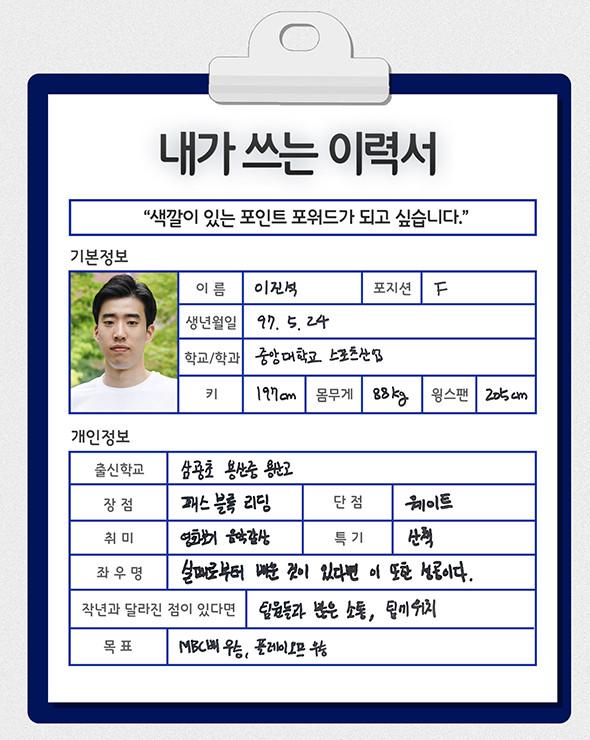 내가 쓰는 이력서
“색깔이 있는 포인트 포워드가 되고 싶습니다.”
기본정보
이 름 이진석 포지션 F
생년월일 97. 5. 24
학교/학과 중앙대학교 스포츠산업
키 197cm 몸무게 88kg 윙스팬 205cm
개인정보
출신학교 삼광초 용산중 용산고
장 점 패스 블록 리딩 단 점 웨이트
취 미 영화보기 음악감상 특 기 산책
좌 우 명 실패로부터 배운 것이 있다면 이 또한 성공이다.
작년과 달라진 점이 있다면 팀원들과 많은 소통,
목 표 MBC배 우승, 플레이오프 우승